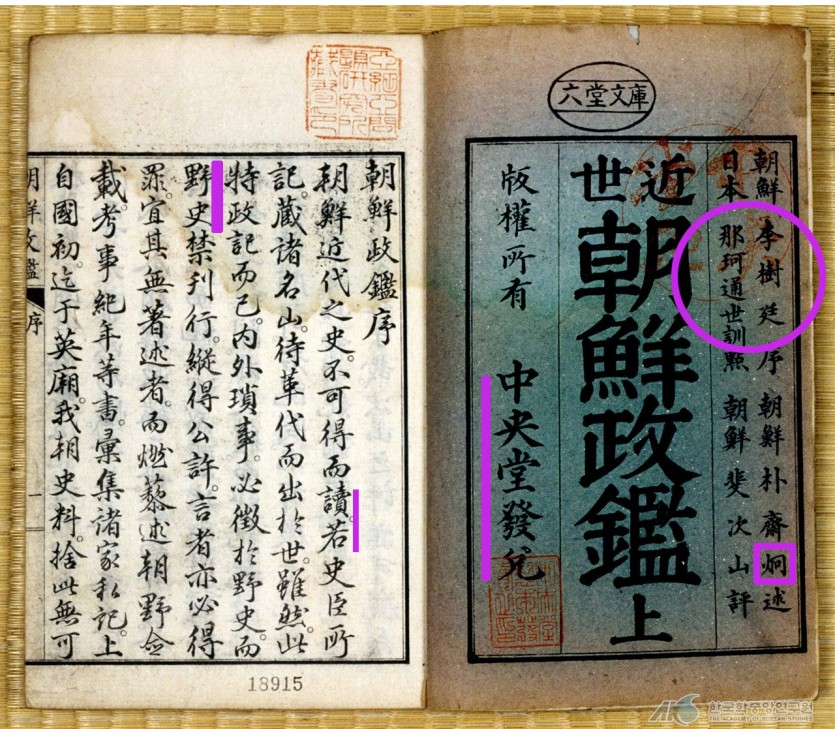 六堂文庫
朝鮮 李樹廷 序 朝鮮 朴齋炯 述
日本 那珂通世訓點 朝鮮 斐次山評
近世
朝鮮政鑑 上
版權所有 中央堂發兌
朝鮮政鑑序
朝鮮近代之史。不可得而讀。若史臣所
記。藏諸名山。待革代而出於世。雖然。此
特政記而已。内外瑣事。必徵於野史。而
野史禁刊行。縱得公許。言者亦必得
罪。宜其無著述者。而燃藜述朝野僉
載。考事紀年等書。彙集諸家私記。上
自國初。迄于英廟。我朝史料。捨此無可
朝鮮政鑑 序 一
18915
한국학중앙연구원
THE ACADEMY OF KOREAN STUDIES